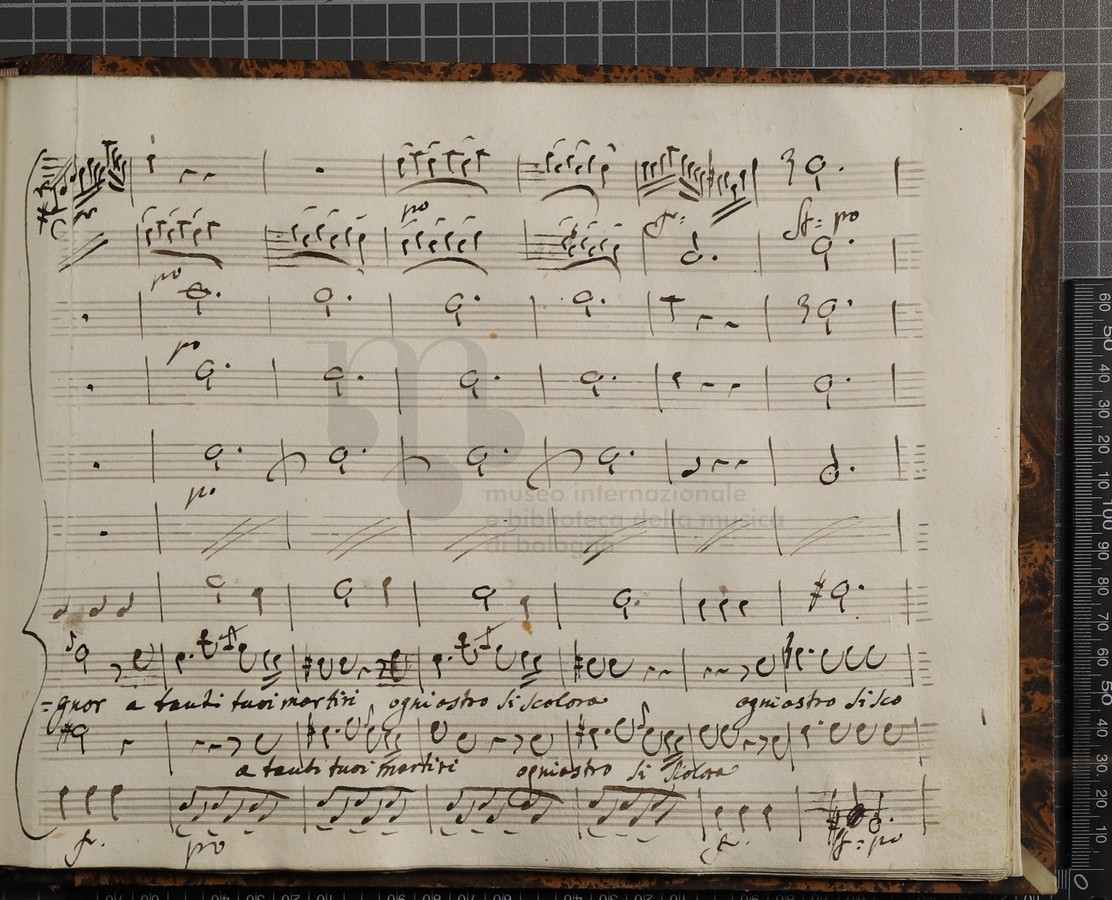 po
f:
sf:=po
po
po
po
museo internazionale
e biblioteca della musica
di bologna
=gnor a tanti tuoi martiri ogni astro si scolora ogni astro si sco
a tanti tuoi martiri ogni astro si scolora
f. po f. sf:=po
60 50 40 30 20 10 100 90 80 70 60 50 40 30 20 10 0